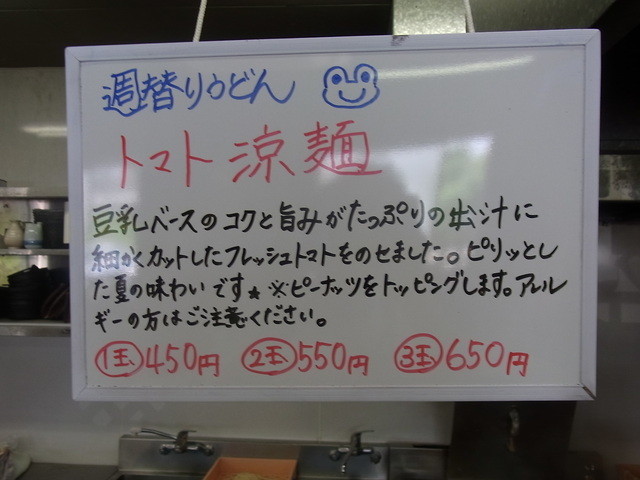 週替りうどん
トマト涼麺
豆乳ベースのコクと旨みがたっぷりの出汁に
細かくカットしたフレッシュトマトをのせました。ピリッとし
た夏の味わいです★ ※ピーナッツをトッピングします。アレル
ギーの方はご注意ください。
1玉 450円 2玉 550円 3玉 650円